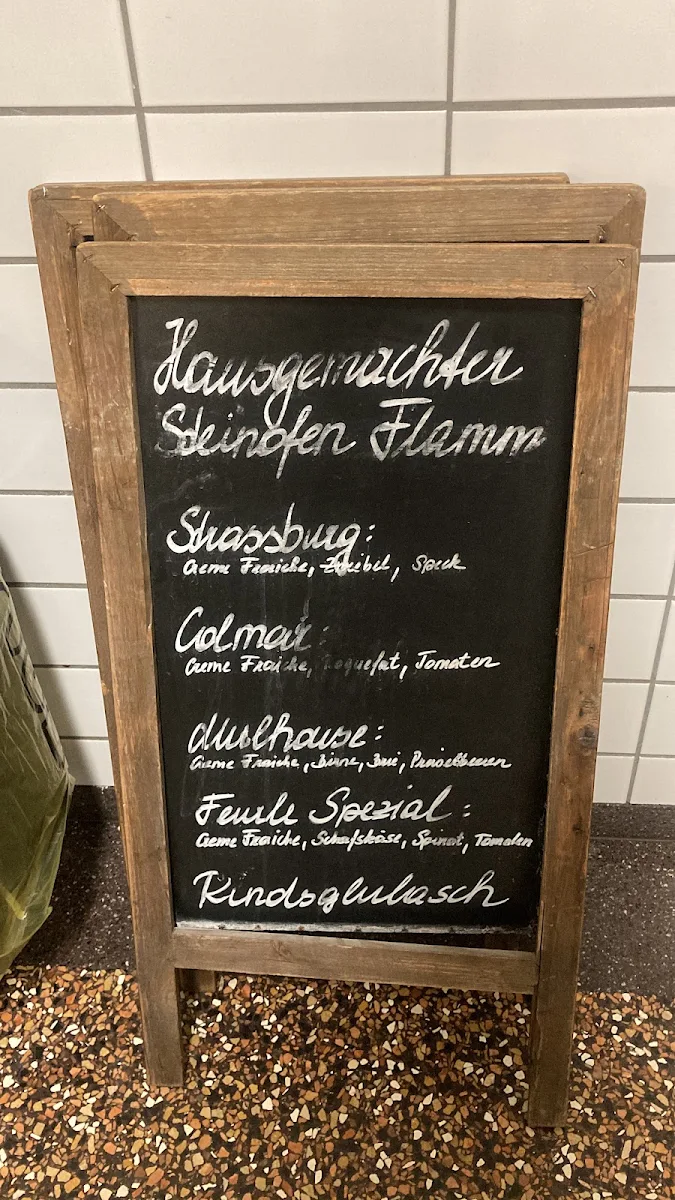 Hausgemachter
Steinofen Flamm
Strassburg:
Creme Fraiche, Zwiebel, Speck
Colmar:
Creme Fraiche, Roquefort, Tomaten
Mulhouse:
Creme Fraiche, Birne, Brie, Preiselbeeren
Feurle Spezial:
Creme Fraiche, Schafskäse, Spinat, Tomaten
Rindsgulasch